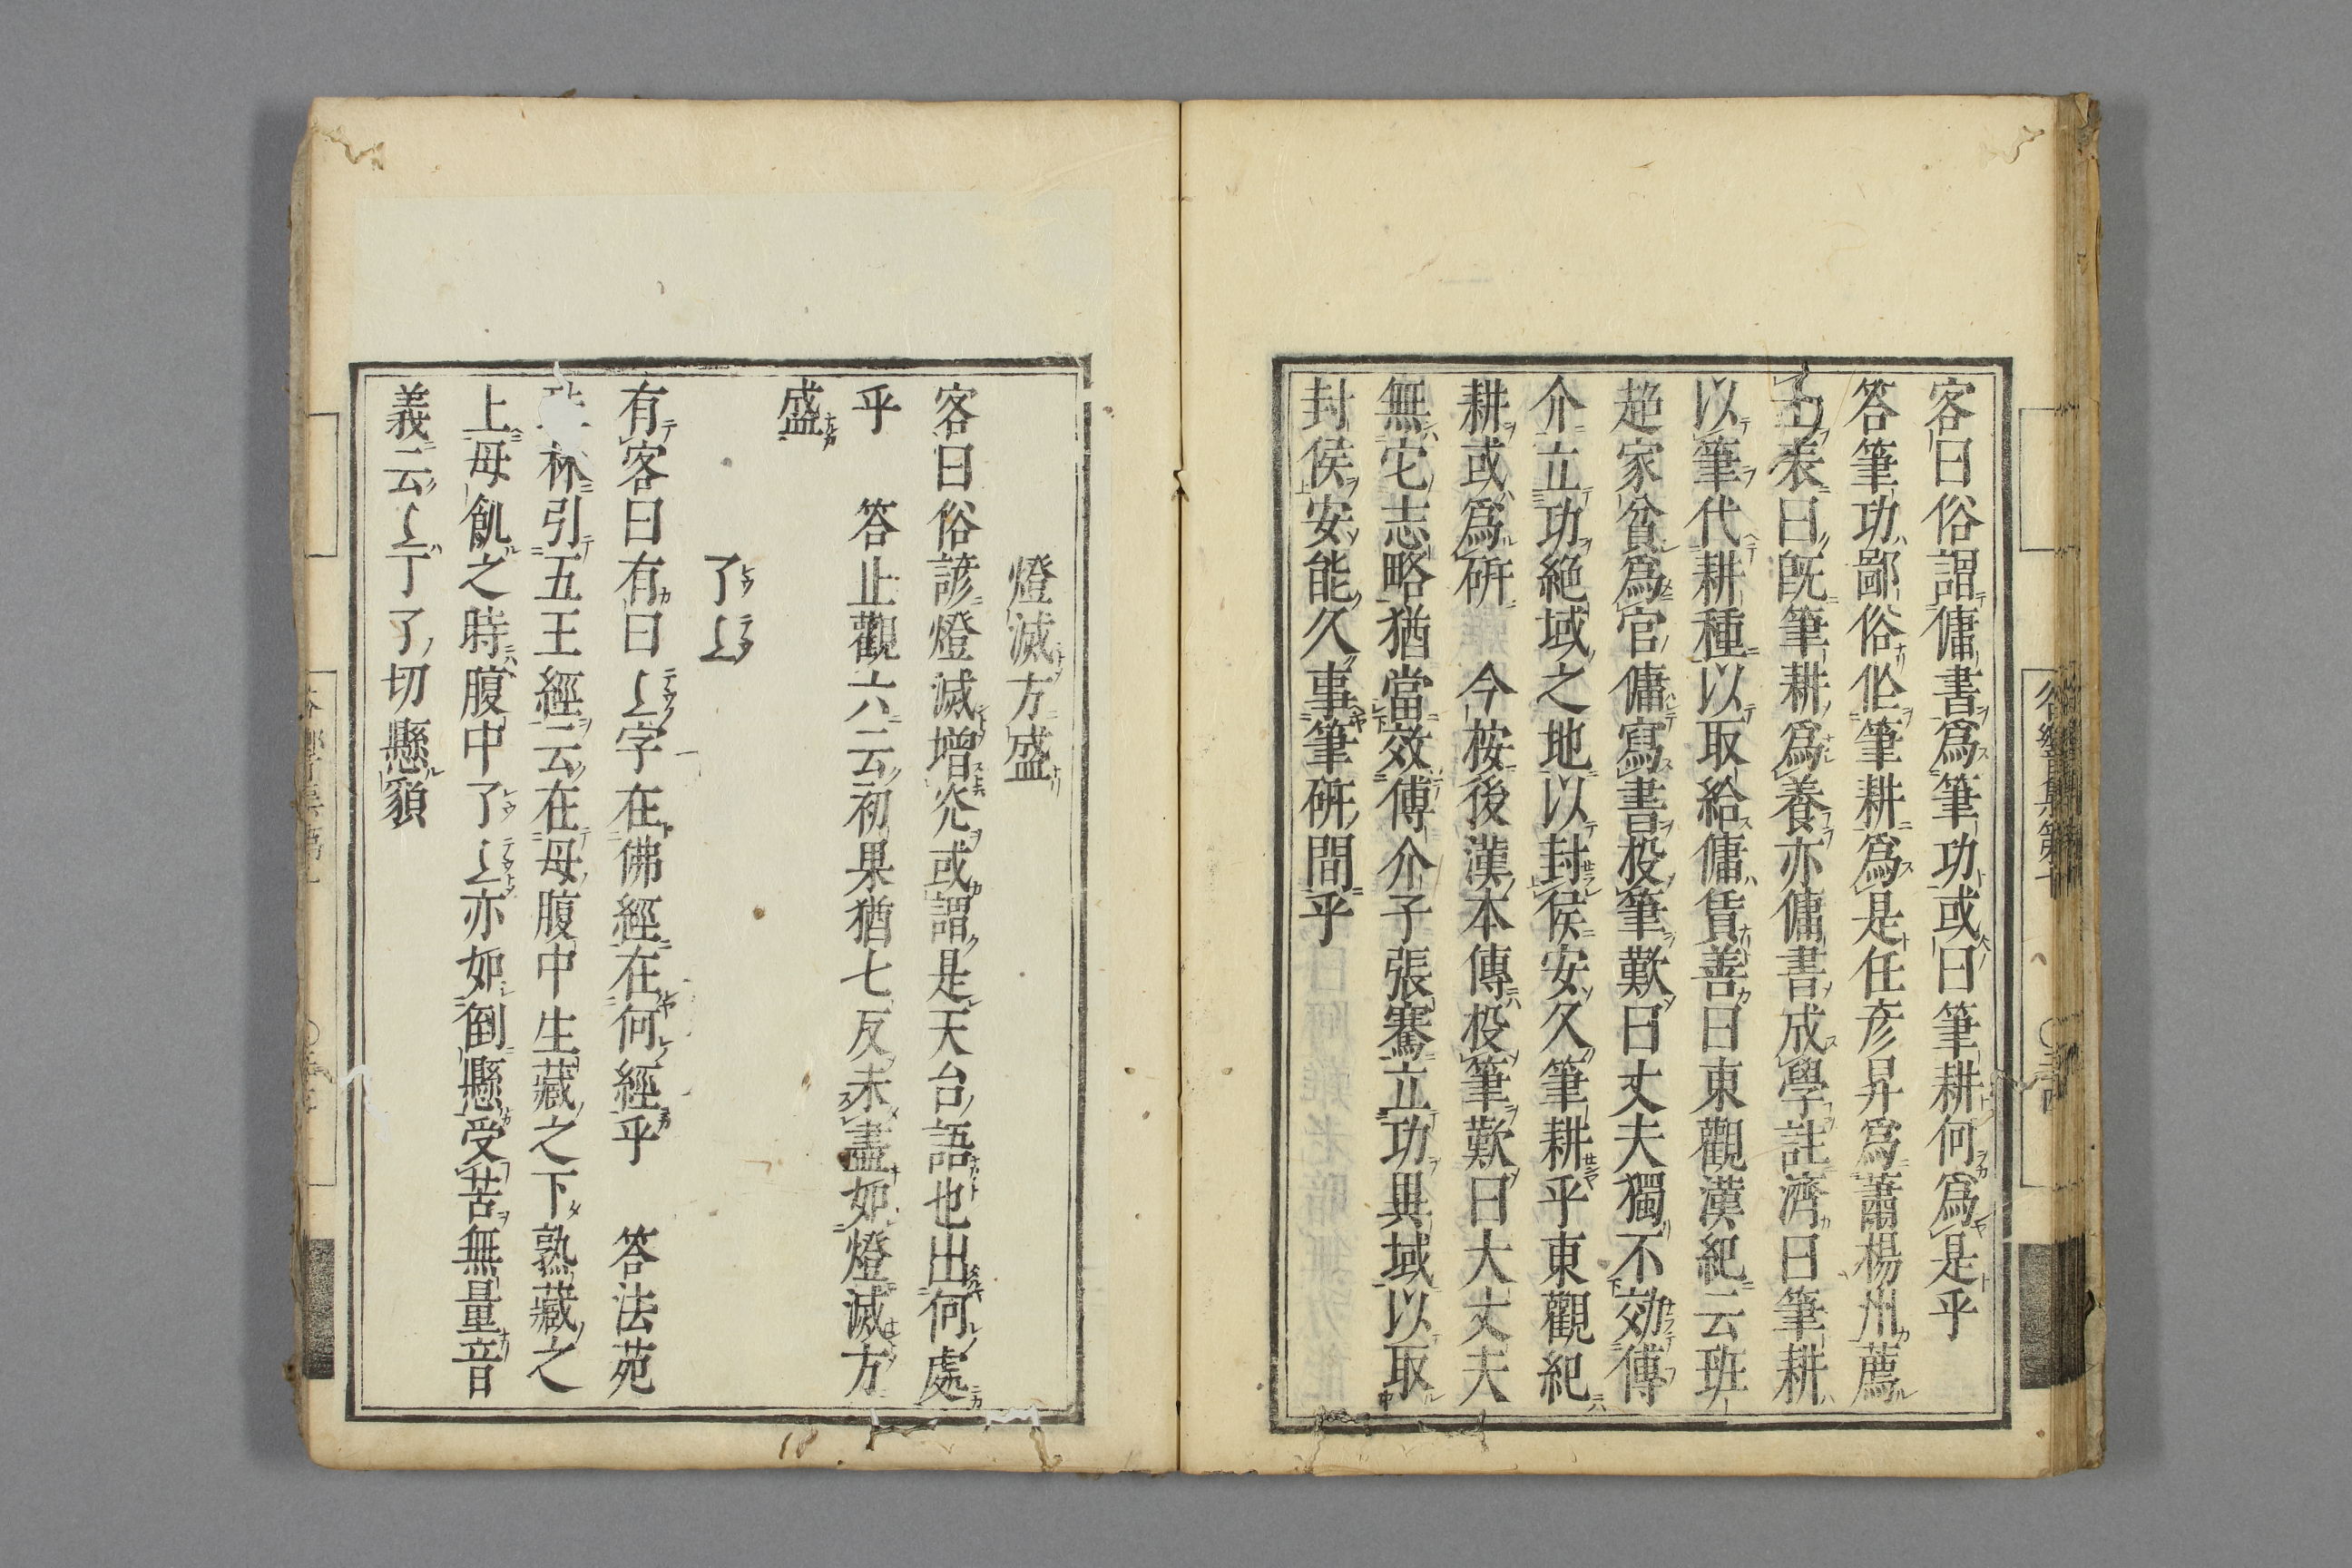 客曰俗謂傭書爲筆功或曰筆耕何爲是乎
答筆功鄙俗也筆耕爲是任彦昇爲蕭楊州薦
士表曰既筆耕爲養亦傭書成學註濟曰筆耕
以筆代耕種以取給傭賃善曰東觀漢紀云班
超家貧爲官傭寫書投筆歎曰丈夫獨不効傅
介立功絶域之地以封侯安久筆耕乎東觀紀
耕或爲研　今按後漢本傳投筆歎曰大丈夫
無它志略猶當效傅介子張騫立功異域以取
封侯安能久事筆硏間乎
燈滅方盛
客曰俗諺燈滅增光或謂是天台語也出何處
乎　答止觀六云初果猶七反未盡如燈滅方
盛
了𠄏
有客曰有曰𠄏字在佛經在何經乎　答法苑
林引五王經云在母腹中生藏之下熟藏之
上母飢之時腹中了𠄏亦如倒懸受苦無量音
義云𠄏丁了切懸貌